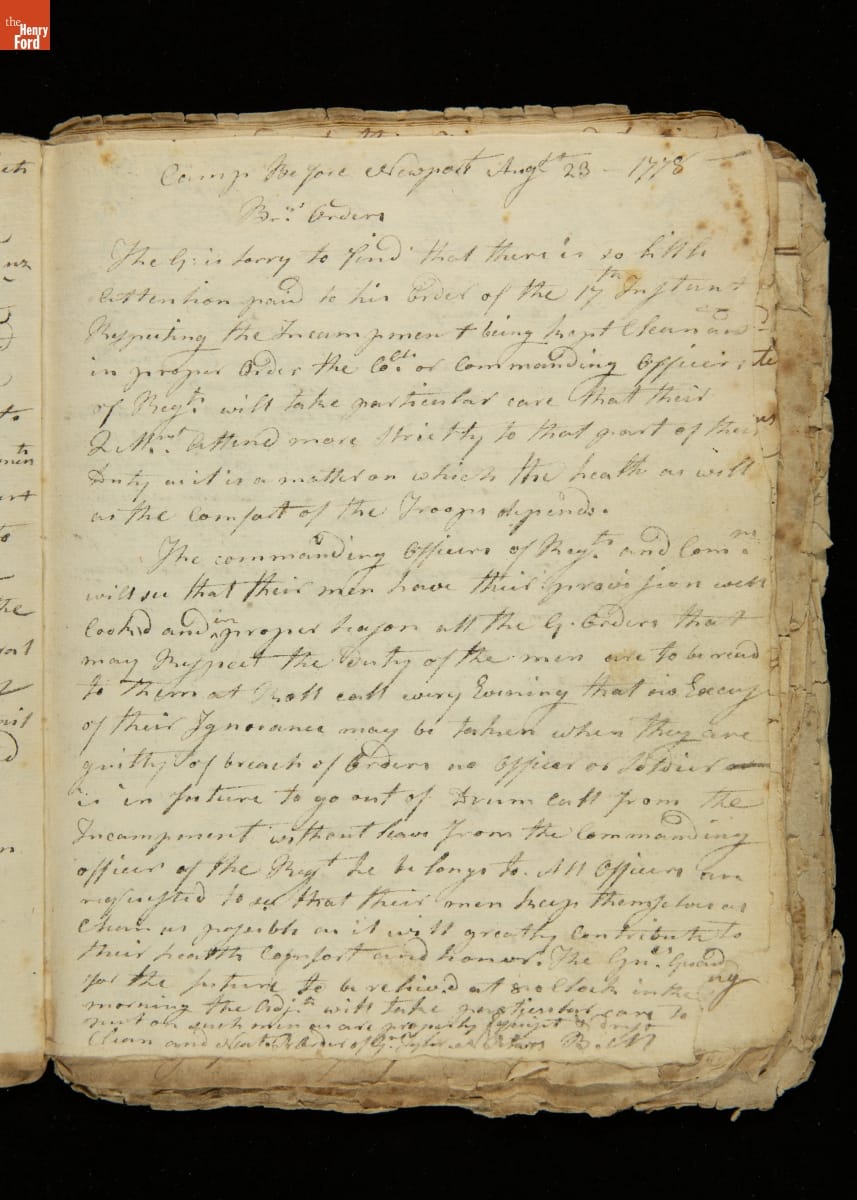 the
Henry
Ford
Camp Before Newport Augst 23 - 1778
Br.. Orders
The G: is sorry to find that there is so little
Attention paid to his Order of the 17th Instant
Respecting the Incampment being kept Clean and
in proper Order the Cols. or Commanding Officers
of Regts. will take particular care that their
Q Mrs. Attend more Strictly to that part of their
Duty as it is a matter on which the health as well
as the Comfort of the Troops depends.
The commanding Officers of Regts and Com
will see that their men have their provision well
Cookd and in proper season all the G. Orders that
may Respect the Duty of the men are to be read
to them at Roll call every Evening that no Excuse
of their Ignorance may be taken when they are
guilty of breach of Orders no Officer or Soldier
is in future to go out of Drum call from the
Incampment without leave from the Commanding
officer of the Regt he belongs to. All Officers are
requested to see that their men keep themselves as
Clean as possible as it will greatly Contribute to
their health Comfort and honor. The
for the future to be relievd at 8 oClock in the
morning the Adjts will take particular care to
such men as are properly
Clean and Neat Order of B. M